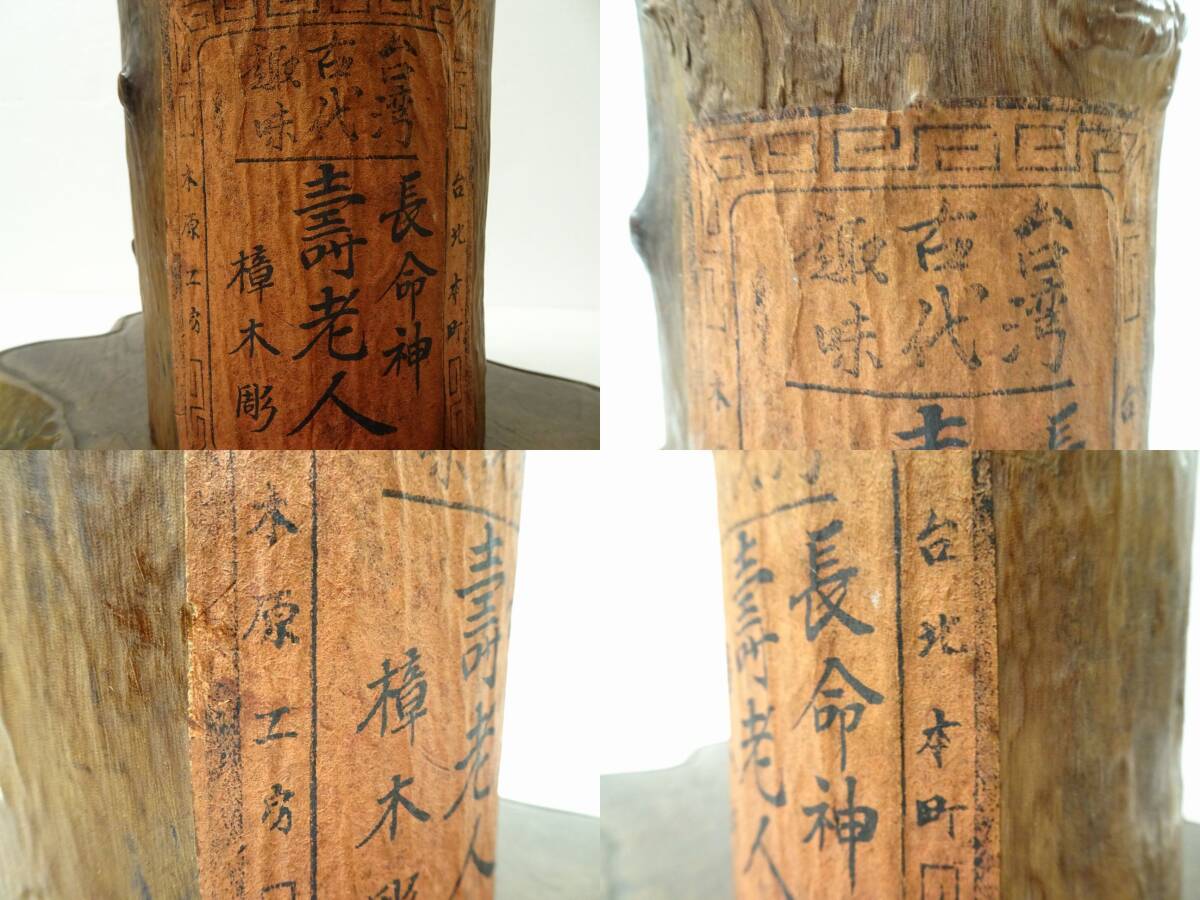 台湾
古代
趣味
台北本町
長命神
壽老人
樟木彫
木原工房
台湾
古代
趣味
台
長
木
壽老人
樟木彫
木原工房
台北本町
長命神
壽老人